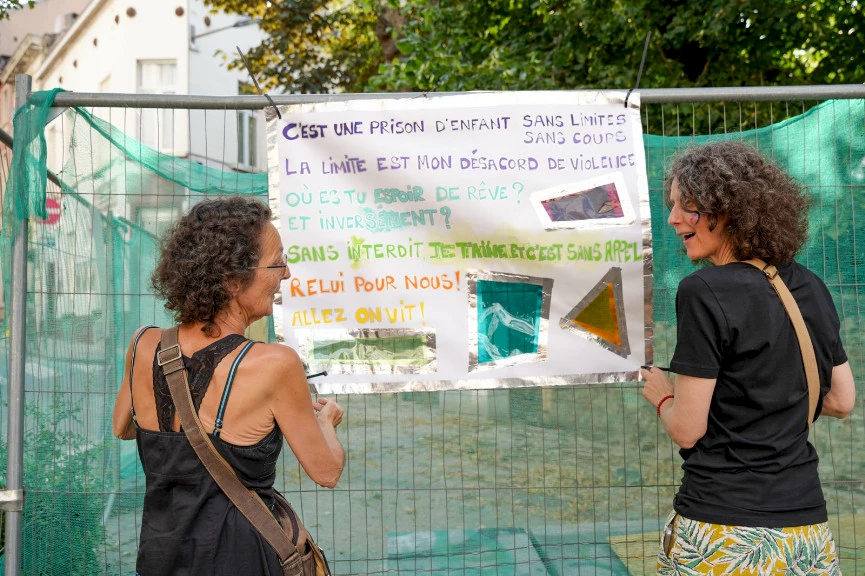 C'EST UNE PRISON D'ENFANT SANS LIMITES
SANS COUPS
LA LIMITE EST MON DÉSACORD DE VIOLENCE
OÙ ES TU ESPOIR DE RÊVE ?
ET INVERSEMENT ?
SANS INTERDIT, JE T'AIME ET C'EST SANS APPEL
RELUI POUR NOUS !
ALLEZ ON VIT !